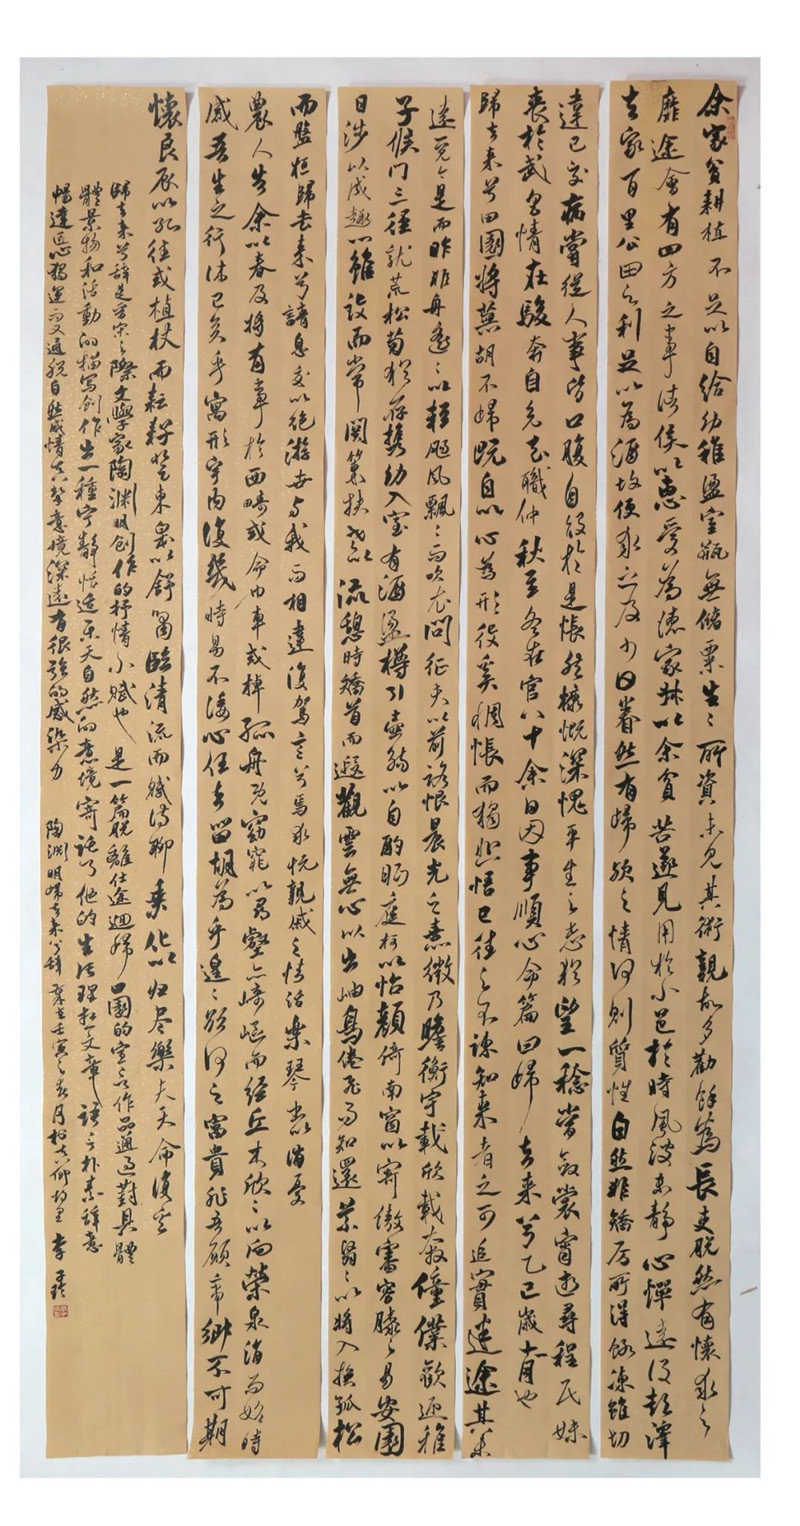 余家貧耕植不足以自給幼稚盈室瓶無儲粟生〻所資未見其術親故多勸余為長吏脫然有懷求之
靡途會有四方之事諸侯以惠愛為德家叔以余貧苦遂見用於小邑於時風波未靜心憚遠役彭澤
去家百里公田之利足以為酒故便求之及少日眷然有歸歟之情何則質性自然非矯厉所得飢凍雖切
違己交病嘗從人事皆口腹自役於是悵然慷慨深愧平生之志猶望一稔當斂裳宵逝尋程氏妹
喪於武昌情在駿奔自免去職仲秋至冬在官八十余日因事順心命篇曰歸去來兮乙巳歲十一月也
歸去來兮田園將蕪胡不歸既自以心為形役奚惆悵而獨悲悟已往之不諫知來者之可追實迷途其未
遠覺今是而昨非舟遙〻以輕颺風飄〻而吹衣問征夫以前路恨晨光之熹微乃瞻衡宇載欣載奔僮僕歡迎稚
子候門三徑就荒松菊猶存攜幼入室有酒盈樽引壺觴以自酌眄庭柯以怡顏倚南窗以寄傲審容膝之易安園
日涉以成趣門雖設而常関策扶老以流憩時矯首而遐觀雲無心以出岫鳥倦飛而知還景翳〻以將入撫孤松
而盤桓歸去來兮請息交以絕游世与我而相違復駕言兮焉求悅親戚之情話樂琴書以消憂
農人告余以春及將有事於西疇或命巾車或棹孤舟既窈窕以尋壑亦崎嶇而經丘木欣〻以向榮泉涓而始時
感吾生之行休已矣乎寓形宇內復幾時曷不委心任去留胡為乎遑〻欲何之富貴非吾願帝鄉不可期
懷良辰以孤往或植杖而耘耔登東皋以舒嘯臨清流而賦詩聊乘化以归尽樂夫天命復奚
歸去來兮辭是晉宋之際文學家陶渊明創作的抒情小賦也是一篇脫離仕途迴歸田園的宣言作品通過對具體
體景物和活動的描写創作出一種宁靜恬适乐天自然的意境寄託了他的生活理想文章語言朴素辞意
暢達匠心獨運而又通脫自然感情真摯意境深遠有很強的感染力　陶渊明歸去來兮辞 歲在壬寅之 月於 李